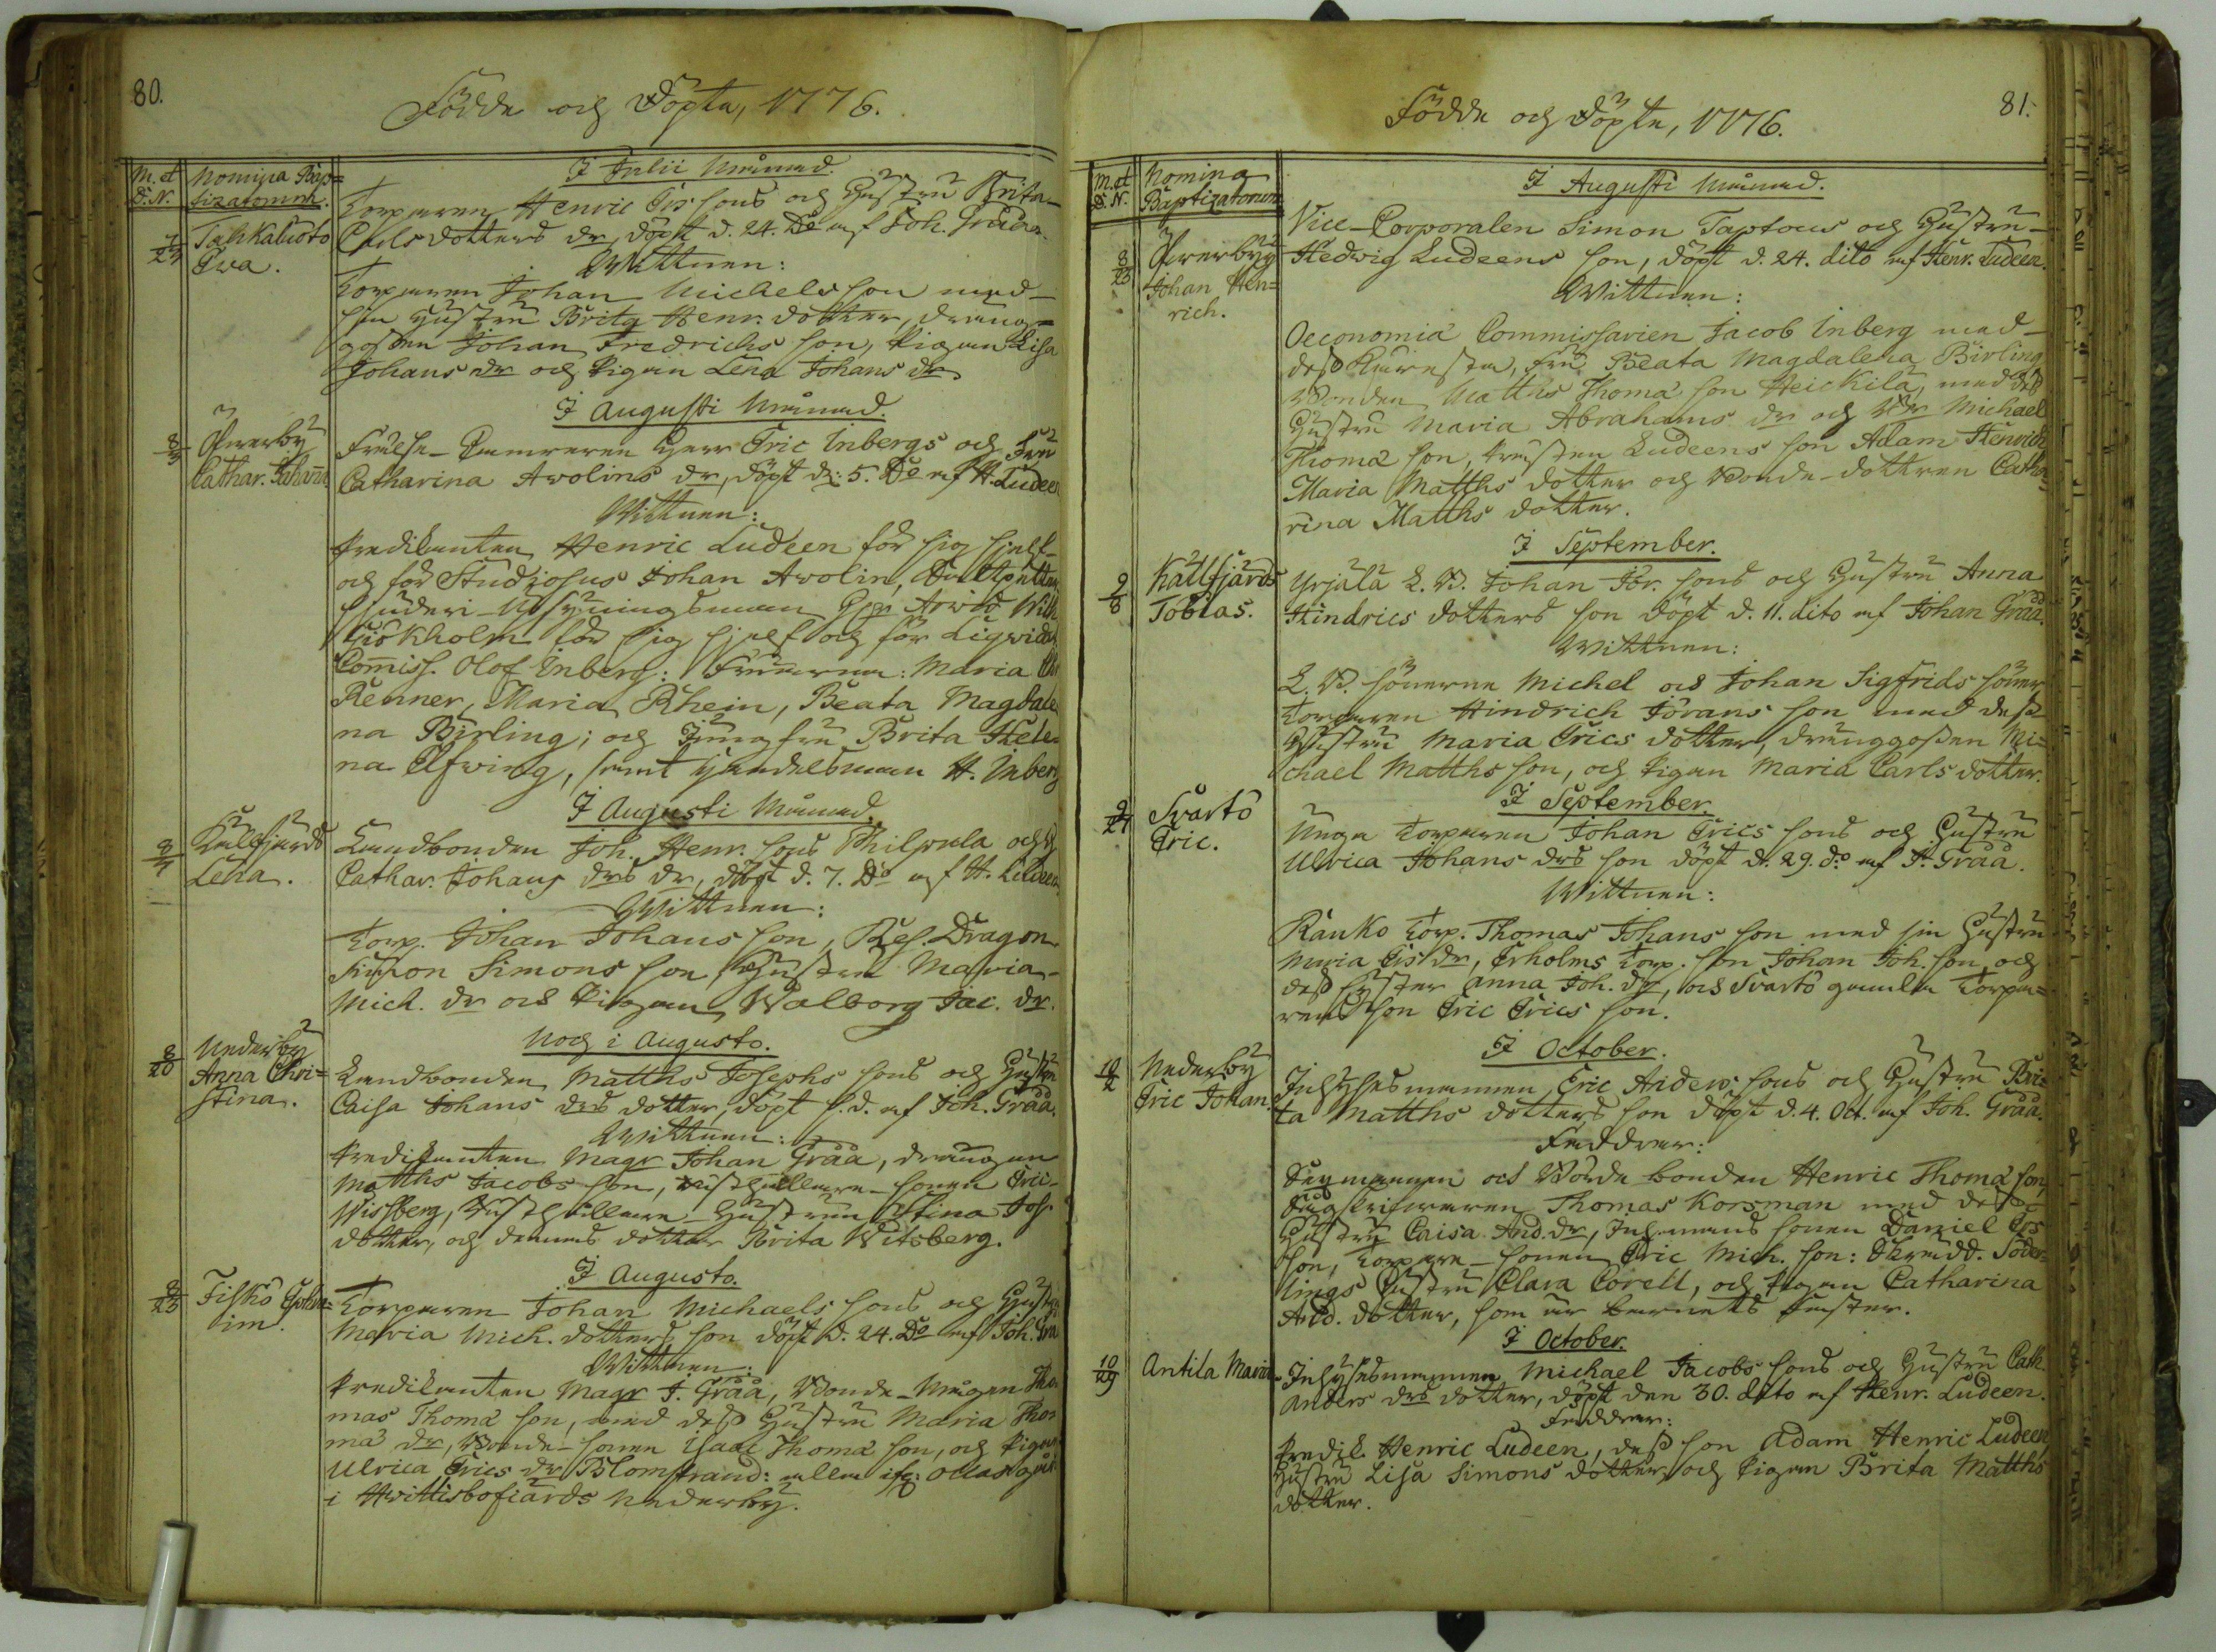 80.
Födde och Döpte, 1776.
M. et D. N.
Nomina Bap=
tizatorum.
I Julii Månad.
7/23
Tahkaluoto
Eva.
Torparen Henric Ers sons och Hustru Brita
Carls dotters dr, döpt d. 24. Do af Joh. Gråå.
Wittnen:
Torparen Johan Michels son med
sin Hustru Brita Henr. dotter, dräng=
gossen Johan Fredrichs son, Pigan Lisa
Johans dr och Pigan Lena Johans dr.
I Augusti Månad.
8/3
Öfwerby
Cathar. Johanna
Frälse-Inspectoren Herr Eric Inbergs och Fru
Catharina Avolins dr, döpt d: 5. De af H. Ludeen
Wittnen:
Predikanten Henric Ludeen för sig sjelf
och för Studiosus Johan Avolin,
Giökholm för sig sjelf och för
Commiss. Olof Inberg: Fruerna: Maria
Renner, Maria Rhein, Beata Magdale
na Birling; och Jungfru Brita Hele
na Elfwing, samt Handelsman H. Inberg
I Augusti Månad.
8/7
Källfjärd
Lena.
Landbonden Joh. Henr. sons Philpula och H
Cathar. Johans drs dr, döpt d. 7. Do af H. Ludeen
Wittnen:
Torp. Johan Johans son, Res. Dragon
Simon Simons son, Hustru Maria
Mich. dr och Pigan Walborg Jac. dr.
Noch i Augusto.
8/20
Nederby
Anna Chri=
stina.
Landbonden Matths Josephs sons och Hustru
Caisa Johans drs dotter, döpt s. d. af Joh. Gråå.
Wittnen:
Predikanten Magr Johan Gråå, drängen
Matths Jacobs son, Rusthållare-sonen Eric
Wissberg, Rusthållare-Hustrun Stina Jos.
dotter, och dennes dotter Brita Witsberg.
I Augusto.
8/23
Fiskö Joha=
im.
Torparen Johan Michaels sons och Hustru
Maria Mich. dotters son döpt d. 24. Do af Joh. Grå
Wittnen:
Predikanten Magr J. Gråå, Bonde-Mågen Tho
mas Thomæ son, med dess Hustru Maria Tho
mæ dr, Bonde-sonen Isaac Thomæ son, och Pigan
Ulrica Erics dr Blomstrand: alla
i Hvittisbofjärds Nederby.
81.
Födde och Döpte, 1776.
M. et D. N.
Nomina
Baptizatorum
I Augusti Månad.
8/23
Öfwerby
Johan Hen=
rich.
Vice-Corporalen Simon Taptous och Hustru
Hedwig Ludeens son, döpt d. 24. dito af Henr. Ludeen.
Wittnen:
Oeconomiæ Commissarien Jacob Inberg med
dess Käresta, Fru Beata Magdalena Birling
Bonden Matths Thomæ son Heickilä, med dess
Hustru Maria Abrahams dr och Michael
Thomæ son, Prästen Ludeens son Adam Henrich
Maria Matths dotter och Bonde-dottren Catha=
rina Matths dotter.
I September.
9/8
Källfjärd
Tobias.
Yrjälä L. B. Johan Jör. sons och Hustru Anna
Hindrics dotters son döpt d. 11. dito af Johan Gråå.
Wittnen:
L. B. Sönerne Michel och Johan Sigfrids söner,
Torparen Hindrich Jörans son med dess
Hustru Maria Erics dotter, dränggossen Mi=
chael Matths son, och Pigan Maria Carls dotter.
I September.
9/27
Svartö
Eric.
Unga Torparen Johan Erics sons och Hustru
Ulrica Johans drs son döpt d. 29. do af J. Gråå.
Wittnen:
Räuko Torp. Thomas Johans son med sin Hustru
Maria Ers dr, Erholms Torp. son Johan Joh. son, och
dess Syster Anna Joh. dr, och Svartö gamla Torpa=
rens son Eric Erics son.
I October.
10/2
Nederby
Eric Johan.
Inhysesmannen Eric Anders sons och Hustru Bri=
ta Matths dotters son döpt d. 4. Oct. af Joh. Gråå.
Faddrar:
Henric Thomæ son,
Thomas Korsman med dess
Hustru Caisa And. dr, Daniel Ers
son, Torpare-sonen Eric Mich. son: Skrädd. Söder=
lings Hustru Clara Corell, och Pigan Catharina
And. dotter, som är barnets Faster.
I October.
10/29
Antila Maria
Inhysesmannen Michael Jacobs sons och Hustru Cath.
Anders drs dotter, döpt den 30. dito af Henr. Ludeen.
Faddrar:
Predik. Henric Ludeen, dess son Adam Henric Ludeen
Hustru Lisa Simons dotter och Pigan Brita Matths
dotter.